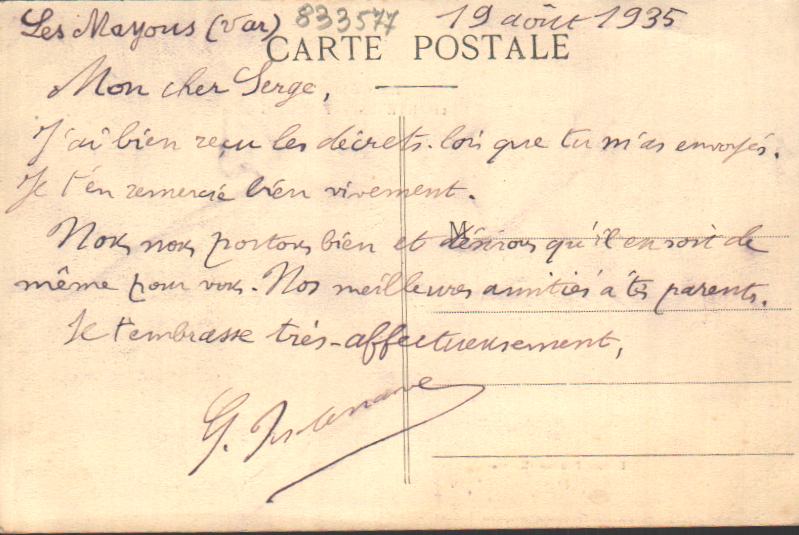 Les Mayons (Var) 833577 19 août 1935
CARTE POSTALE
Mon cher Serge,
J'ai bien reçu les décrets-lois que tu m'as envoyés.
Je t'en remercie bien vivement.
M
Nous nous portons bien et désirons qu'il en soit de
même pour vous. Nos meilleures amitiés à tes parents.
Je t'embrasse très-affectueusement,
G.